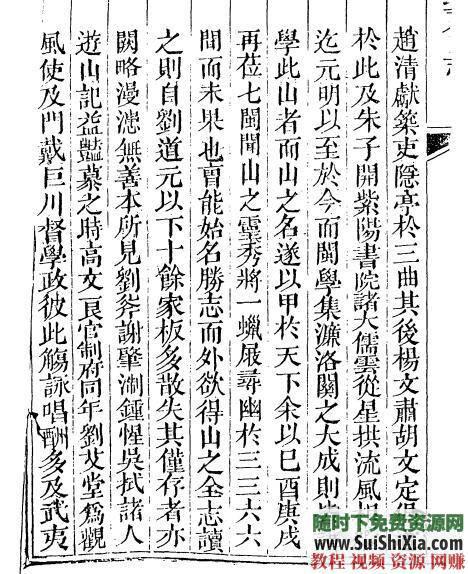 趙清獻築吏隱亭於三曲其後楊文肅胡文定
於此及朱子開紫陽書院諸大儒雲從星拱流風
迄元明以至於今而閩學集濂洛關之大成則
學此山者而山之名遂以甲於天下余以巳酉庚戌
再莅七閩聞山之靈秀將一蠟屐尋幽於三三六六
間而未果也曾能始名勝志而外欲得山之全志讀
之則自劉道元以下十餘家板多散失其僅存者亦
闕略漫漶無善本所見劉斧謝肇淛鍾惺吳拭諸人
遊山記益豔慕之時高文良官制府同年劉艾堂爲觀
風使及門戴巨川督學政彼此觴詠唱酬多及武夷
随时下免费资源网
www.SuiShiXia.Com
教程 视频 资源 网赚